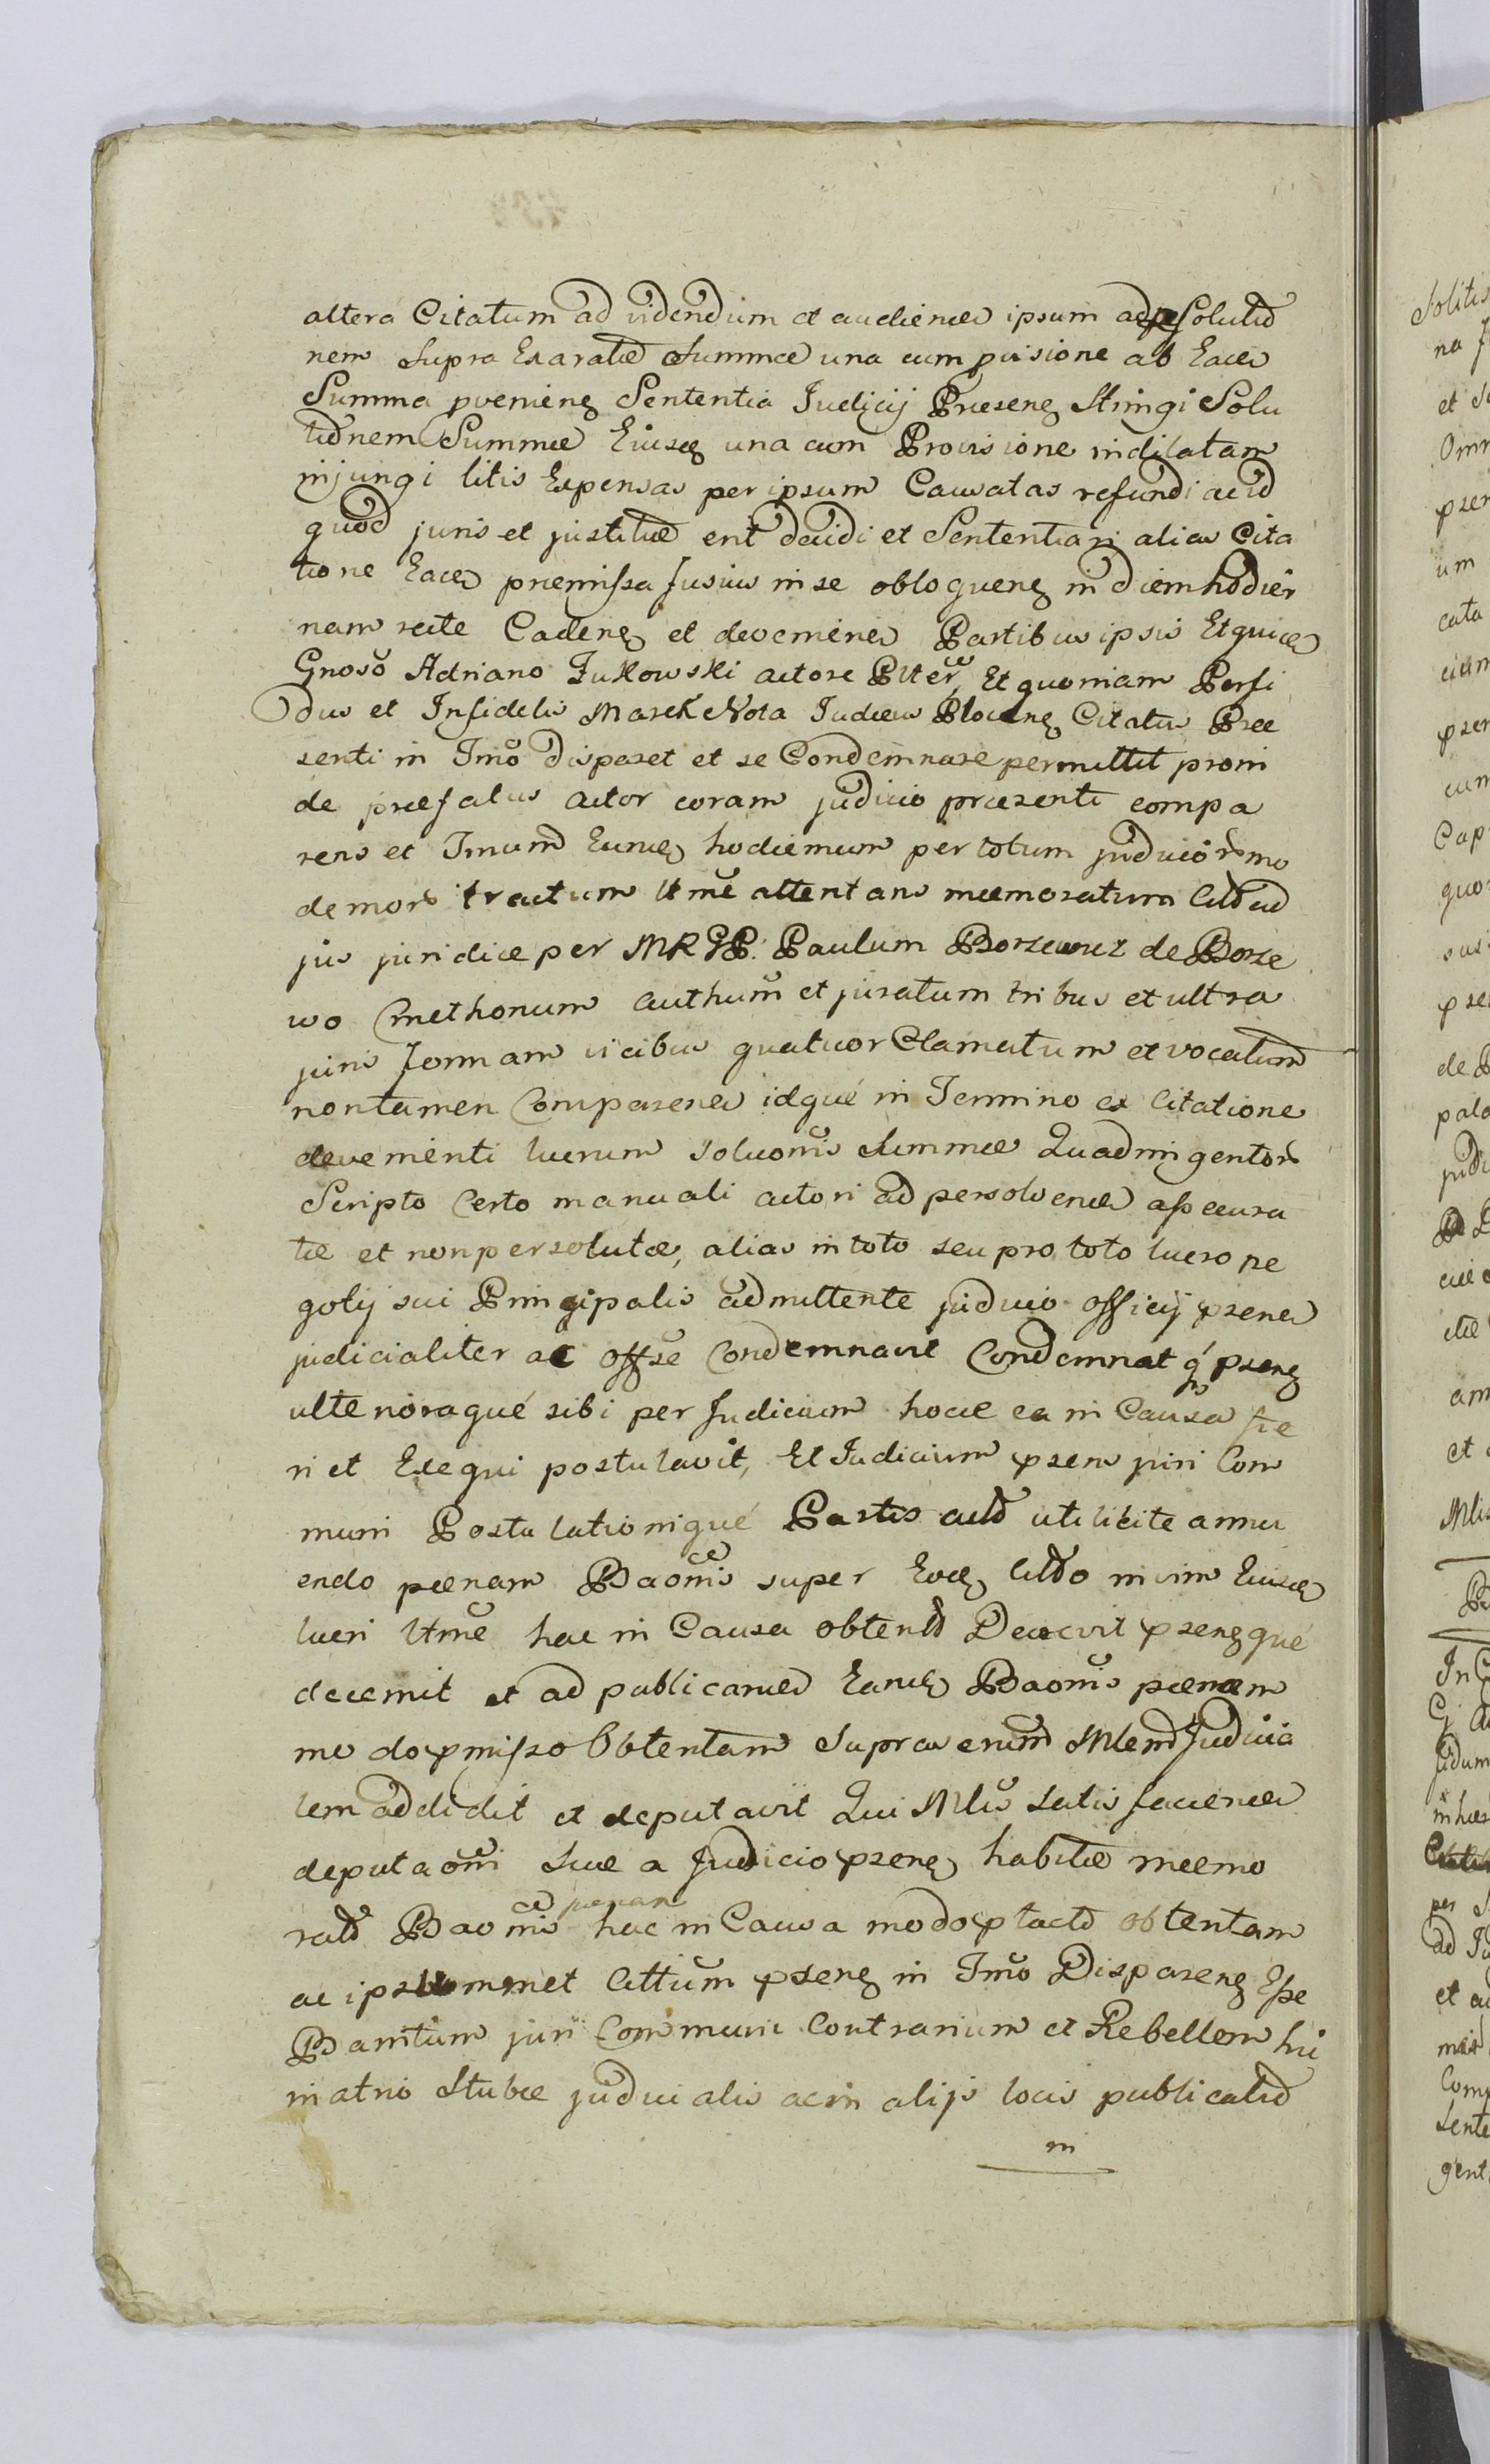 altera Citatum ad videndum et audiend ipsum ad psolutio
nem supra Exaratæ Summæ una cum pvisione ab Eadem
Summa pvenien Sententia Iudicij Præsen Stringi Solu
tionem Summæ Eiusd una cum Provisione indilatam
injungi litis Expensas per ipsum Causatas refundi ac id
quod juris et justitiæ erit decidi et Sententiari alias Cita
tione Eadem præmissa fusius in se obloquen in diem hodier
nam recte Caden et devenien Partibus ipsis Et quidem
Gnoso Adriano Zukowski actore Et quoniam Perfi
dus et Infidelis Marek Nota Iudæus Plocen Citatus Præ
senti in Tmo disparet et se Condemnare permittit proin
de præfatus actor coram judicio præsenti compa
rens et Tmum Eund hodiernum per totum judicior mo
de mori tractum Ltme attentans mæmoratum Cittum ad
jus juridice per MRGP. Paulum Borzewicz de Borze
wo Methonum authum et juratum tribus et ultra
juris formam vicibus quatuor Clamatum et vocatum
non tamen Comparend idque in Termino ex Citatione
devenienti lucrum soluonis Summæ Quadringentor
Scripto Certo manuali actori ad persolvend assecura
tæ et non persolutæ, alias in toto seu pro toto lucro ne
gotij sui Principalis admittente judicio officij psend
judicialiter ac offse Condemnavit Condemnat q psen
ulterioraque sibi per Iudicium hocce ea in Causa fie
ri et Exequi postulavit, Et Iudicium psens juri Com
muni Postulationique Partis uti licite annu
endo pænam Baonis super Eod Citto in vim Eiusd
lucri Ltme hac in Causa obtenti Decrevit psenque
decernit et ad publicand Eand Baonis pænam
mo do pmisso Obtentam Mlem Judicia
lem addidit et deputavit Qui Mlis satis faciend
deputaoni suæ a Judicio psen habitæ mæmo
ratæ Baonis pænam hac in Causa modo ptacto obtentam
ac ipsummet Cittum psen in Tmo Disparen Esse
Banitum juri Communi Contrarium et Rebellem hic
in atrio Stubæ judicialis ac in alijs locis publicatio
in